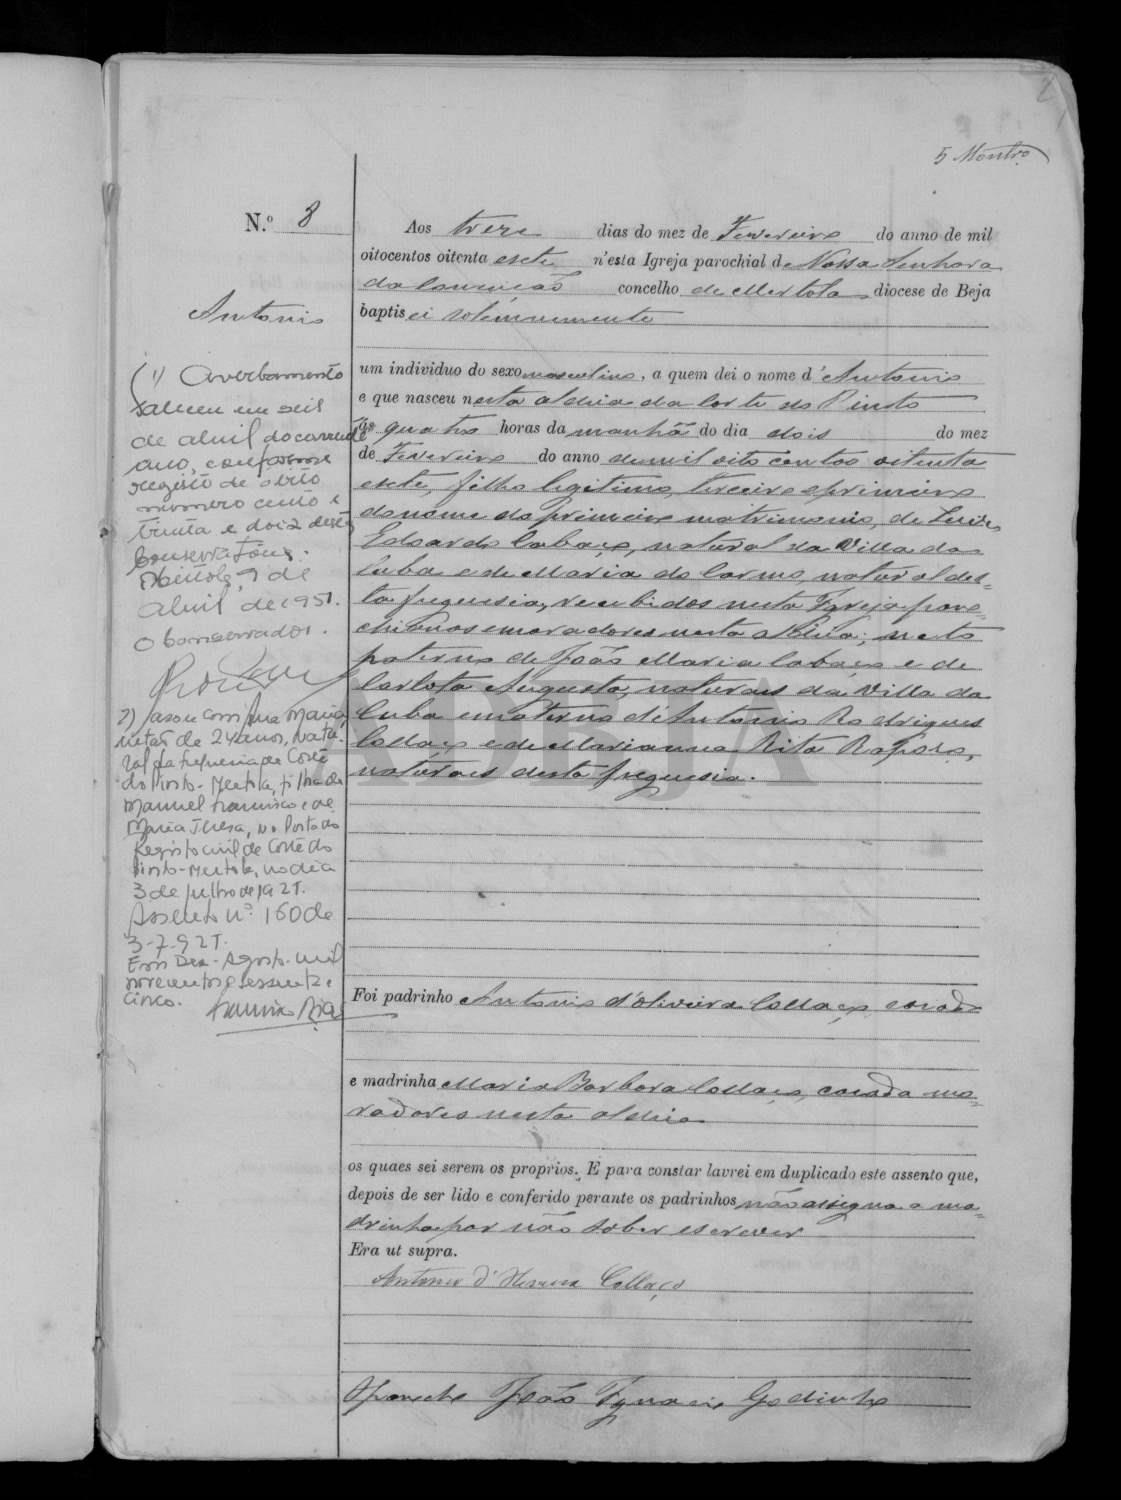 2
5 Montro
N.º 8
Aos treze dias do mez de Fevereiro do anno de mil
oitocentos oitenta esete n'esta Igreja parochial de Nossa Senhora
da Conceição concelho de Mertola diocese de Beja
Antonio
baptisei solemnemente
um individuo do sexo masculino, a quem dei o nome d'Antonio
e que nasceu nesta aldeia da Corte do Pinto
ás quatro horas da manhã do dia dois do mez
de Fevereiro do anno de mil oito centos oitenta
esete, filho legitimo, terceiro e primeiro
do nome do primeiro matrimonio, de
Eduardo Colaço, natural da Villa da
Cuba e de Maria do Carmo, natural des=
ta freguesia, recebidos nesta Igreja, paro=
chianos e moradores nesta aldeia; neto
paterno de João Maria Colaço e de
Carlota Augusta, naturaes da Villa da
Cuba e materno d'Antonio Rodrigues
Collaço e de Marianna Rita Raposo,
naturaes desta freguesia.
Foi padrinho Antonio d'Oliveira Collaço casado
e madrinha Maria Barbora Collaço, casada mo=
radores nesta aldeia
os quaes sei serem os proprios. E para constar lavrei em duplicado este assento que,
depois de ser lido e conferido perante os padrinhos não assigna a ma=
drinha por não saber escrever
Era ut supra.
Antonio d' Collaço
O Parocho João Ignacio Godinho
(1) Averbamento
Faleceu em seis
de abril do corrente
ano, conforme
registo de óbito
numero cento e
trinta e dois desta
Conservatória.
Mértola, 9 de
abril, de 1951.
O Conservador.
2) Casou com Ana Maria,
de 24 anos, natu-
ral da freguesia de Corte
do Pinto - Mertola, filha de
Manuel Francisco e de
Maria Teresa, no Posto do
Registo civil de Corte do
Pinto - Mertola, no dia
3 de julho de 1921.
Assento nº 160 de
3-7-921.
Em Dez - Agosto - mil
novecentos e sessenta e
cinco.
ADBJA